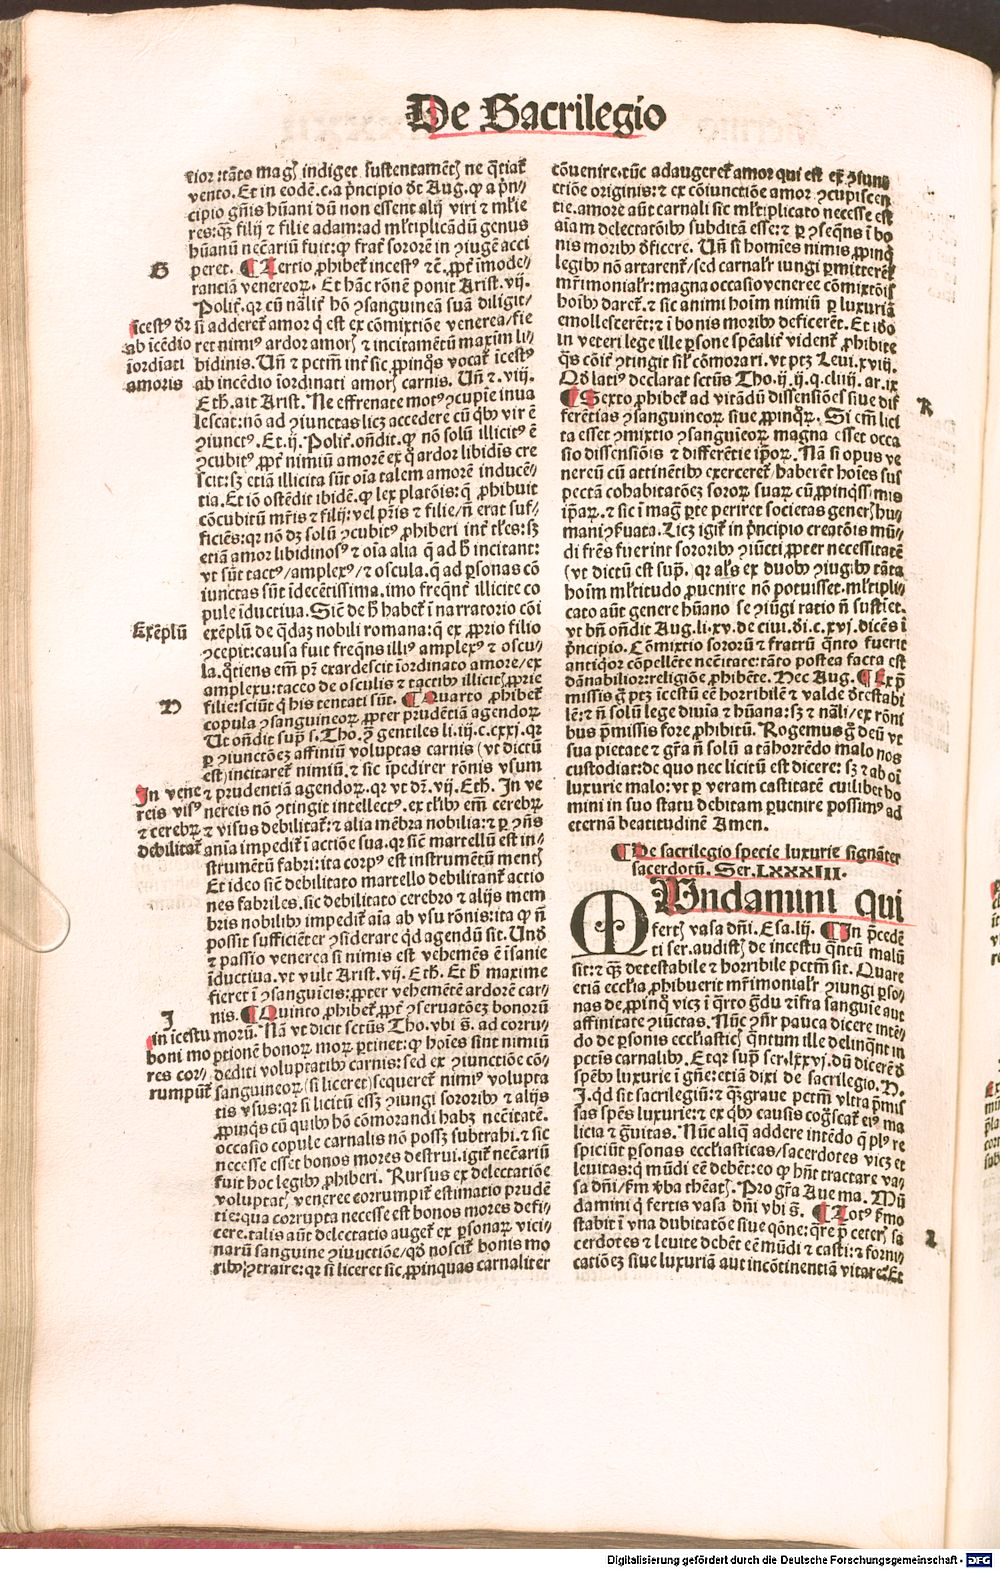 De Sacrilegio
tior:tãto magꝭ indiget sustentamẽtꝭ ne q̃tiaꝶ
vento. Et in eodẽ.c.a p̃ncipio dt Aug. ꝙ a p̃n/
cipio gñis hũani dũ non essent alij viri ⁊ mľie
res:qꝫ filij ⁊ filie adam:ad mľtiplicãdũ genus
hũanũ necãriũ fuit:ꝙ fraꝶ sororẽ in ꝯiugẽ acci
peret. ¶ Tertio ꝓhibeꝶ incestꝰ ⁊c̃. ꝓpt̃ imode/
rantiã venereoꝝ. Et hãc rõnẽ ponit Arist. vij.
Polit̃. qꝛ cũ nãlit̃ hõ ꝯsanguineã suã diligit/
si addereꝶ amor q̇ est ex cõmixtiõe venerea/fie
ret nimiꝰ ardor amorꝭ ⁊ incitamẽtũ maxim li/
bidinis. Uñ ⁊ pctm̃ int̃ sic ꝓpinqꝰs vocaꝶ icestꝰ
ab incẽdio iordinati amorꝭ carnis. Uñ ⁊. viij.
Eth. ait Arist. Ne effrenate motꝰ ꝯcupie inua
lescat:nõ ad ꝯiunctas licꝫ accedere cũ q̇bꝰ vir ẽ
ꝯiunctꝰ. Et. ij. Polit̃. oñdit. ꝙ nõ solũ illicitꝰ ẽ
ꝯcubitꝰ ꝓpt̃ nimiũ amorẽ ex q̊ ardor libidis cre
scit:sꝫ etiã illicita sũt oĩa talem amorẽ inducẽ/
tia. Et iõ ostẽdit ibidẽ. ꝙ lex platõis:q̃ ꝓhibuit
cõcubitũ mr̃is ⁊ filij:vel pr̃is ⁊ filie/ñ erat suf/
ficiẽs:qꝛ nõ dꝫ solũ ꝯcubitꝰ ꝓhiberi int̃ tľes:sꝫ
etiã amor libidinosꝰ ⁊ oĩa alia q̃ ad h̃ incitant:
vt sũt tactꝰ/amplexꝰ/⁊ oscula. q̃ ad ꝑsonas cõ
iunctas sũt idecẽtissima. imo freqñt̃ illicite co
pule iductiua. Siẽ de h̃ habeꝶ i narratorio cõi
exẽplũ de q̃daꝫ nobili romana:q̃ ex ꝓprio filio
ꝯcepit:causa fuit freqñs illiꝰ amplexꝰ ⁊ oscu/
la. q̃tiens em̃ pr̃ exardescit iordinato amore/ex
amplexu:taceo de osculis ⁊ tactibꝰ illicitꝭ ꝓprie
filie:sciũt q̇ his tentati sũt. ¶ Quarto ꝓhibeꝶ
copula ꝯsanguineoꝝ ꝓpter prudẽtiã agendoꝝ
Ut oñdit sup̃ s. Tho. ꝯ̃ gentiles li. iij. c. cxxi. qꝛ
ꝑ ꝯiunctõeꝫ affiniũ voluptas carnis (vt dictũ
est) incitareꝶ nimiũ. ⁊ sic ipedirer rõnis vsum
⁊ prudẽtiã agendoꝝ. qꝛ vt dꝛ. vij. Eth. In ve
nereis nõ ꝯtingit intellectꝰ. ex tľibꝰ em̃ cerebꝝ
⁊ visus debilitaꝶ:⁊ alia mẽbra nobilia:⁊ ꝑ ꝯñs
anĩa impediꝶ i actiõe sua. qꝛ siẽ martellũ est in/
strumẽtũ fabri:ita corpꝰ est instrumẽtũ mentꝭ
Et ideo siẽ debilitato martello debilitanꝶ actio
nes fabriles. sic debilitato cerebro ⁊ alijs mem
bris nobilibꝰ impediꝶ aĩa ab vsu rõnis:ita ꝙ ñ
possit sufficiẽter ꝯsiderare qd̃ agendũ sit. Und̃
⁊ passio venerea si nimis est vehemẽs ẽ isanie
iductiua. vt vult Arist. vij. Eth. Et h̃ maxime
fieret i ꝯsanguieis:ꝓpter vehemẽtẽ ardorẽ car/
nis. ¶ Quinto ꝓhibeꝶ ꝓpt̃ ꝯseruatõeꝫ bonorũ
morũ. Nã vt dicit sctũs Tho. vbi s̃. ad corru/
ptionẽ bonoꝝ moꝝ ꝑtinet:ꝙ hoĩes sint nimiũ
dediti voluptatibꝰ carnis:sed ex ꝯiunctiõe cõ/
sanguineoꝝ (si liceret) sequereꝶ nimiꝰ volupta
tis vsus:qꝛ si licitũ esꝫ ꝯiungi sororibꝰ ⁊ alijs
ꝓpinqꝭ cũ quibꝰ hõ cõmorandi habꝫ necẽitatẽ.
occasio copule carnalis nõ possꝫ subtrahi. ⁊ sic
necesse esset bonos mores destrui. igiꝶ necãriũ
fuit hoc legibꝰ ꝓhiberi. Rursus ex delectatiõe
voluptatꝭ veneree corrumpiꝶ estimatio prudẽ
tie:qua corrupta necesse est bonos mores defi/
cere. talis aũt delectatio augeꝶ ex ꝑsonaꝝ vici/
narũ sanguine ꝯiunctiõe/qd̃ nosciꝶ bonis mo
ribꝰ ꝯtraire:qꝛ si liceret sic ꝓpinquas carnaliter
G
icestꝰ dr̃
ab icẽdio
iordiati
amoris
Exẽplũ
H
In vene
reis visꝰ
⁊ cerebꝝ
debilitaꝶ
I
in icestu
boni mo
res cor/
rumpũꝶ
cõuenire. tũc adaugereꝶ amor qui est ex ꝯiun
ctiõe originis:⁊ ex cõiunctiõe amor ꝯcupiscen
tie. amore aũt carnali sic mľtiplicato necesse est
aĩam delectatõibꝰ subditã esse:⁊ ꝑ ꝯseqñs i bo
nis moribꝰ dficere. Uñ si homĩes nimis ꝓpinq̃
legibꝰ nõ artarenꝶ/sed carnalr̃ iungi ꝑmitterẽꝶ
mr̃imonialr̃:magna occasio veneree cõmixtõis
hoĩbꝰ dareꝶ. ⁊ sic animi hoĩm nimiũ ꝑ luxuriã
emollescerẽt:⁊ i bonis moribꝰ deficerẽt. Et ido
in veteri lege ille ꝑsone spẽalit̃ videnꝶ ꝓhibite
q̃s cõit̃ ꝯtingit siľ cõmorari. vt ptꝫ Leui. xviij.
Qd̃ latiꝰ declarat sctũs Tho. ij. ij. q. cliiij. ar. ix
¶ Sexto ꝓhibeꝶ ad vitãdũ dissensiões siue dif
ferẽtias ꝯsanguineoꝝ siue ꝓpinqꝝ. Si em̃ lici
ta esset ꝯmixtio ꝯsanguieoꝝ magna esset occa
sio dissensiõis ⁊ differẽtie ip̃oꝝ. Nã si opus ve
nereũ cũ attinẽtibꝰ exerceretꝶ/haberẽt hoĩes sus
pectã cohabitatõeꝫ soroꝝ suaꝝ cũ ꝓpinqͥssimis
ip̃aꝝ. ⁊ sic i mag̃ ꝑte periret societas generꝭ hu
mani ꝯẽuata. Licꝫ igiꝶ in p̃ncipio creatõis mũ/
di fr̃es fuerint sororibꝰ ꝯiũcti ꝓpter necessitatẽ
(vt dictũ est sup̃. qꝛ aľs ex duobꝰ ꝯiugibꝰ tãta
hoĩm mľtitudo ꝓuenire nõ potuisset. mľtipli/
cato aũt genere hũano se ꝯiũgi ratio ñ sustiet.
vt bñ oñdit Aug. li. xv. de ciui. di. c. xvj. dicẽs i
p̃ncipio. Cõmixtio sororũ ⁊ fratrũ q̃nto fuerit
antiqor cõpellẽte necẽitate:tãto postea facta est
dãnabilior:religiõe ꝓhibẽte. Nec Aug. ¶ Ex p̃
missis g̃ ptꝫ icestũ eẽ horribilẽ ⁊ valde dtestabi
lẽ:⁊ ñ solũ lege diuia ⁊ hũana:sꝫ ⁊ nãli/ex rõni
bus p̃missis fore ꝓhibitũ. Rogemus g̃ deũ vt
sua pietate ⁊ gr̃a ñ solũ a tã horrẽdo malo nos
custodiat:de quo nec licitũ est dicere: sꝫ ⁊ ab oĩ
luxurie malo:vt ꝑ veram castitatẽ cuilibet ho
mini in suo statu debitam ꝑuenire possimꝰ ad
eternã beatitudinẽ Amen.
¶ De sacrilegio specie luxurie signãter
sacerdotũ. Ser. LXXXIII.
Mundamini qui
fertꝭ vasa dñi. Esa. lij. ¶ In p̃cedẽ
ti ser. audistꝭ de incestu q̃ntũ malũ
sit:⁊ qꝫ detestabile ⁊ horribile pctm̃ sit. Quare
etiã eccľia ꝓhibuerit mr̃imonialr̃ ꝯiungi ꝑso/
nas de ꝓpinqͥ vicꝫ i q̃rto g̃du ⁊ifra sanguie aut
affinitate ꝯiũctas. Nũc ꝯñr pauca dicere intẽ/
do de ꝑsonis eccľiasticꝭ q̃ntum ille delinqñt in
pctĩs carnalibꝰ. Et qꝛ sup̃ ser. lxxvj. dũ dicerẽ d̃
spẽbꝰ luxurie i gñe:etiã dixi de sacrilegio. N.
I. qd̃ sit sacrilegiũ:⁊ qꝫ graue pctm̃ vltra p̃mis
sas spẽs luxurie:⁊ ex qͥbꝰ causis cog̃scaꝶ eiꝰ ma
licia ⁊ g̃uitas. Nũc aliq̃ addere intẽdo q̃ plꝰ re
spiciũt ꝑsonas eccľiasticas/sacerdotes vicꝫ et
leuitas:q̇ mũdi eẽ debẽt:eo ꝙ hñt tractare va/
sa dñi/ẜm v̾ba theãtꝭ. Pro gr̃a Aue ma. Mũ
damini q̇ fertis vasa dñi vbi s̃. ¶ Totꝰ ẜmo
stabit i vna dubitatõe siue qõne:qr̃e p̃ ceterꝭ sa
cerdotes ⁊ leuite debẽt eẽ mũdi ⁊ casti:⁊ forni/
catiõeꝫ siue luxuriã aut incõtinentiã vitare. Et
K
L
Digitalisierung gefördert durch die Deutsche Forschungsgemeinschaft - DFG